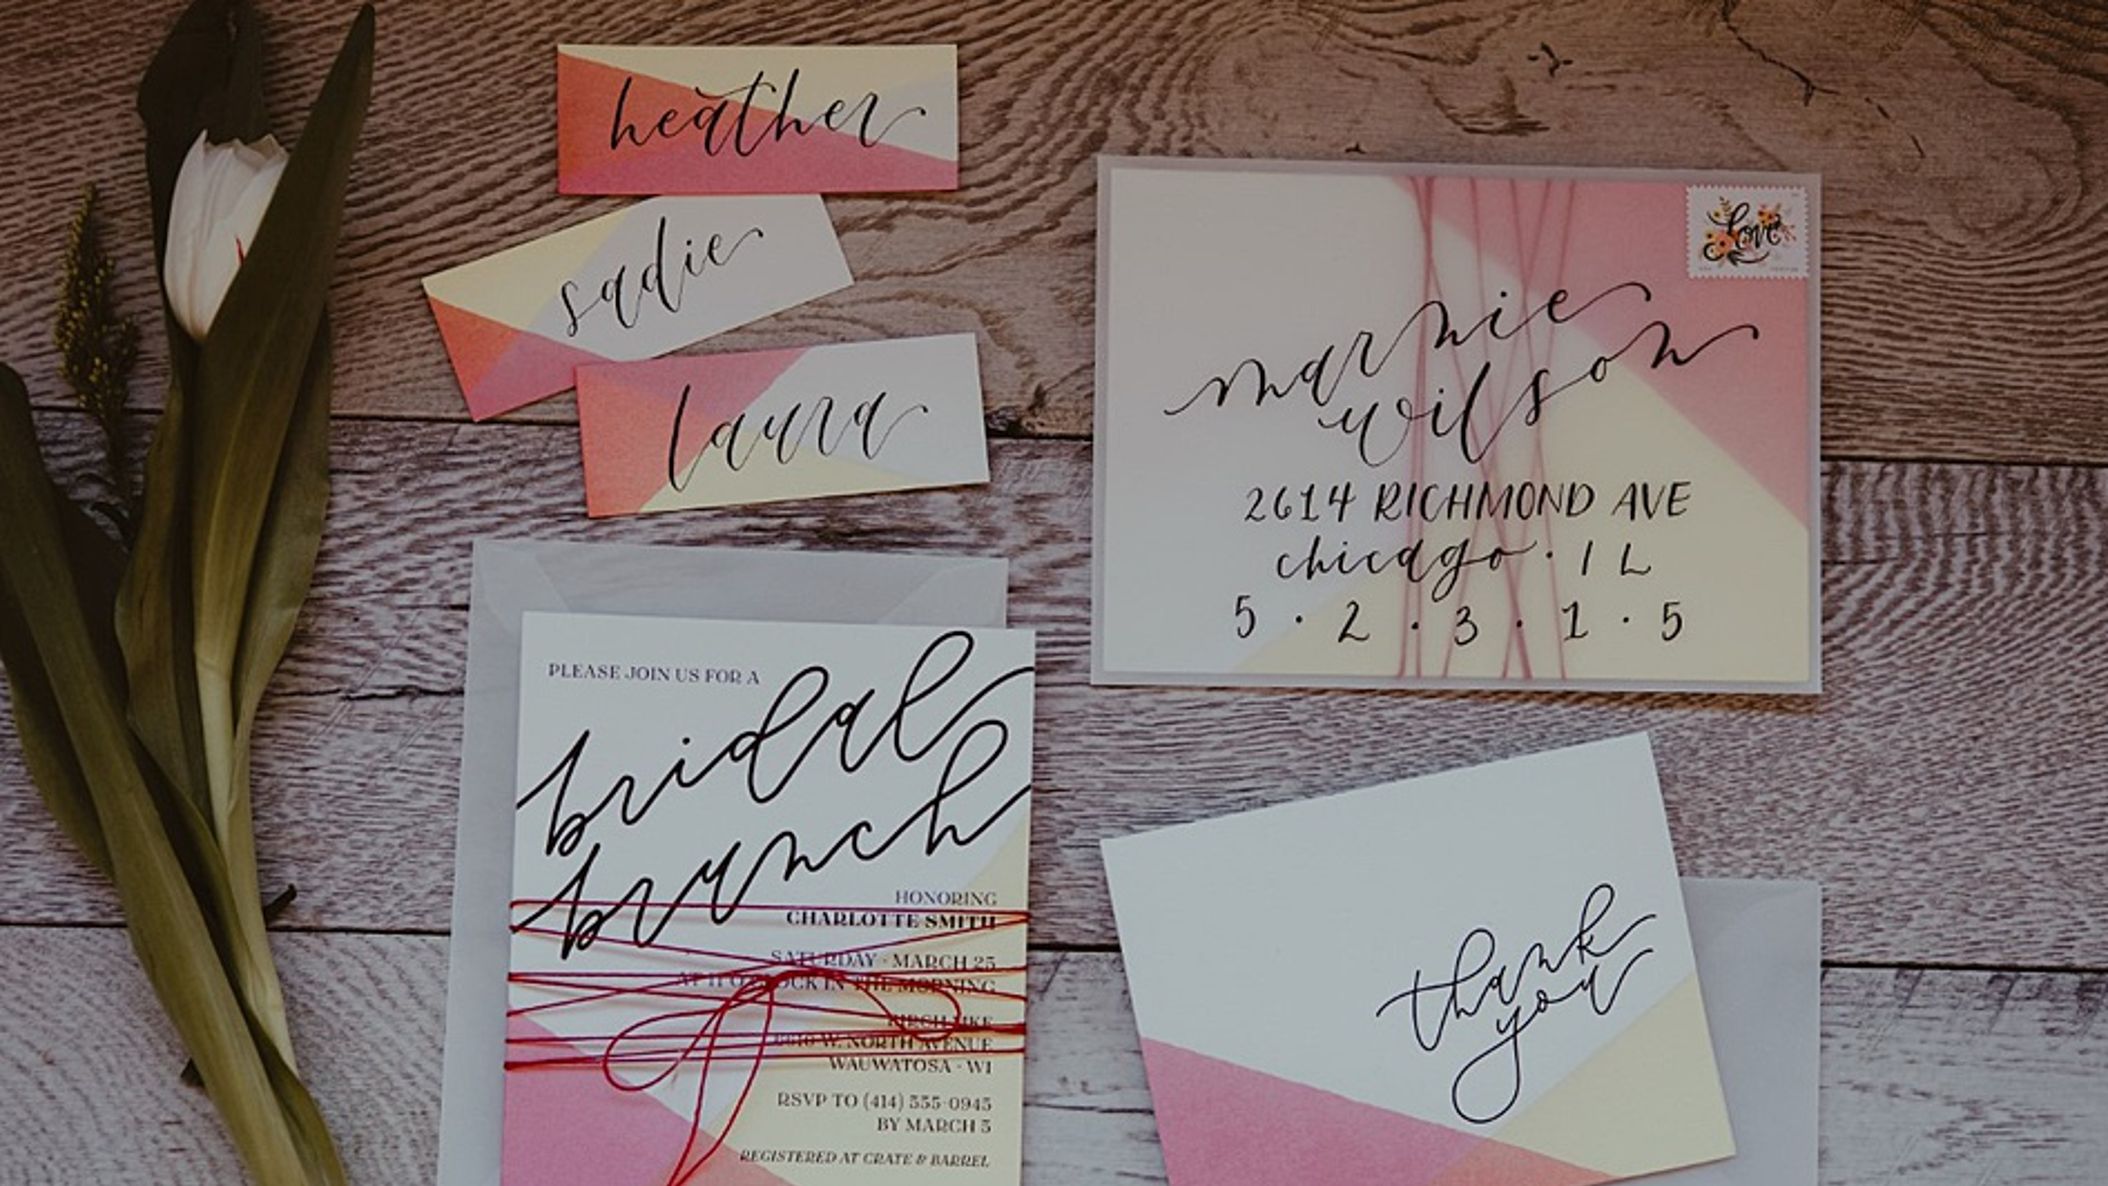 heather
sadie
laura
love
marnie
wilson
2614 RICHMOND AVE
chicago · IL
5 · 2 · 3 · 1 · 5
PLEASE JOIN US FOR A
bridal
brunch
HONORING
CHARLOTTE SMITH
SATURDAY · MARCH 25
AT 11 O'CLOCK IN THE MORNING
W. NORTH AVENUE
WAUWATOSA · WI
RSVP TO (414) 555-0945
BY MARCH 5
REGISTERED AT CRATE & BARREL
thank
you